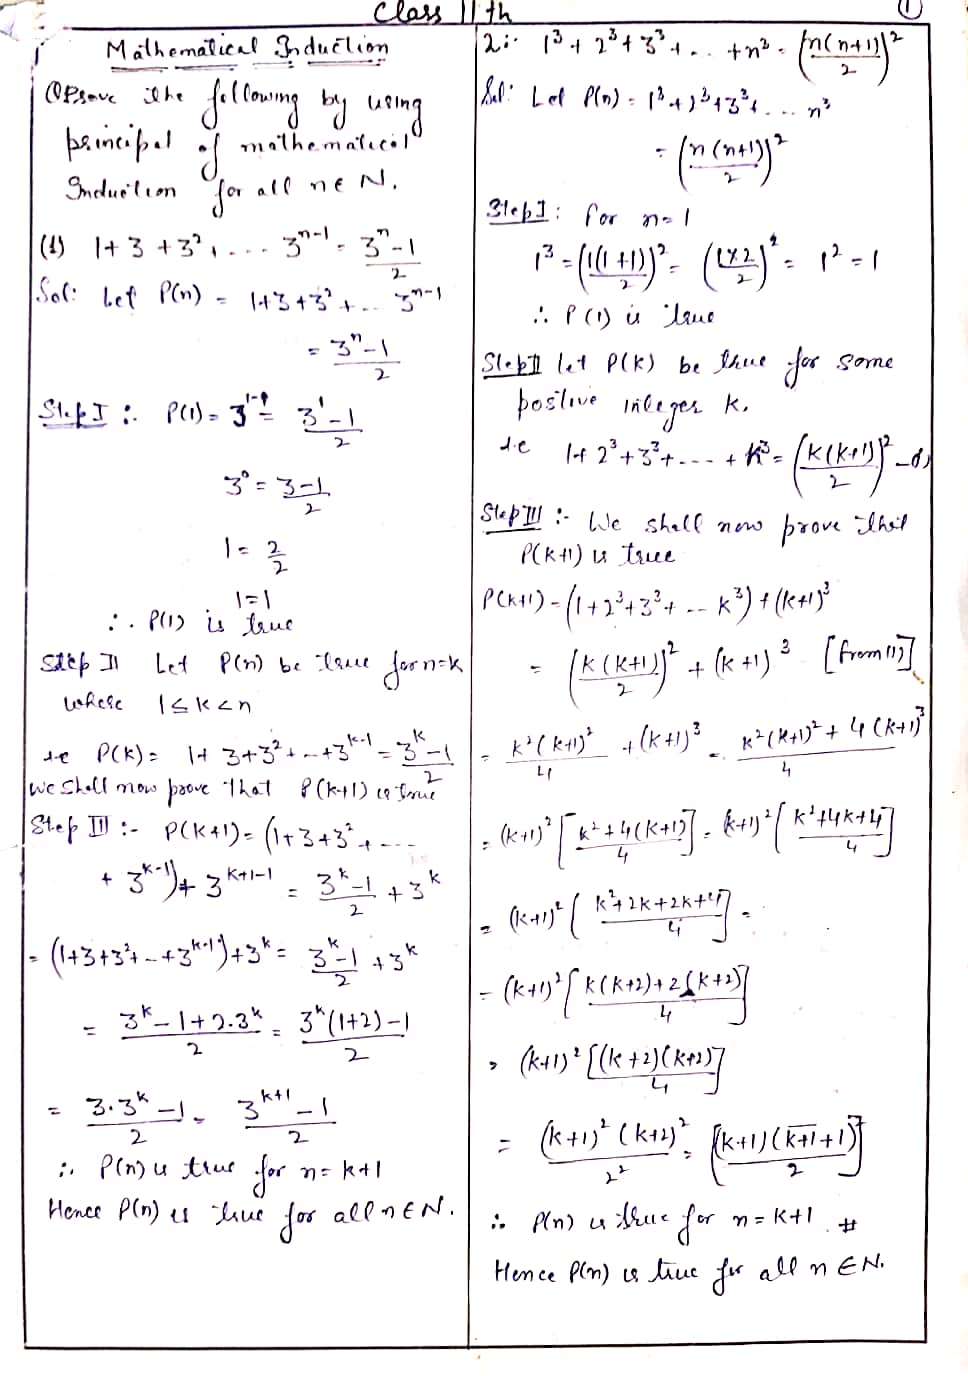 Class 11th
1
Mathematical Induction
Q Prove the following by using
principal of mathematical
Induction for all n ∈ N.
(1) 1 + 3 + 3² + ... 3ⁿ⁻¹ = (3ⁿ - 1)/2
Sol: Let P(n) = 1 + 3 + 3² + .. 3ⁿ⁻¹
= (3ⁿ - 1)/2
Step I :- P(1) = 3¹⁻¹ = (3¹ - 1)/2
3⁰ = (3 - 1)/2
1 = 2/2
1 = 1
∴ P(1) is true
Step II Let P(n) be true for n = k
where 1 ≤ k < n
i.e P(k) = 1 + 3 + 3² + ... + 3ᵏ⁻¹ = (3ᵏ - 1)/2
We shall now prove that P(k+1) is true
Step III :- P(k+1) = (1 + 3 + 3² + ....
+ 3ᵏ⁻¹) + 3ᵏ⁺¹⁻¹ = (3ᵏ - 1)/2 + 3ᵏ
= (1 + 3 + 3² + .. + 3ᵏ⁻¹) + 3ᵏ = (3ᵏ - 1)/2 + 3ᵏ
= (3ᵏ - 1 + 2.3ᵏ)/2 = (3ᵏ(1+2) - 1)/2
= (3.3ᵏ - 1)/2 = (3ᵏ⁺¹ - 1)/2
∴ P(n) is true for n = k+1
Hence P(n) is true for all n ∈ N.
2:- 1³ + 2³ + 3³ + .. + n³ = (n(n+1)/2)²
Sol: Let P(n) = 1³ + 2³ + 3³ + ... n³
= (n(n+1)/2)²
Step I : for n = 1
1³ = (1(1+1)/2)² = (1×2/2)² = 1² = 1
∴ P(1) is true
Step II let P(k) be true for some
postive integer k.
i.e 1 + 2³ + 3³ + .... + k³ = (k(k+1)/2)² -(1)
Step III :- We shall now prove that
P(k+1) is true
P(k+1) = (1 + 2³ + 3³ + .. k³) + (k+1)³
= (k(k+1)/2)² + (k+1)³ [from (1)]
= k²(k+1)²/4 + (k+1)³ = (k²(k+1)² + 4(k+1)³)/4
= (k+1)² [(k² + 4(k+1))/4] = (k+1)² [(k² + 4k + 4)/4]
= (k+1)² [(k² + 2k + 2k + 4)/4] =
= (k+1)² [(k(k+2) + 2(k+2))/4]
= (k+1)² [(k+2)(k+2)/4]
= (k+1)² (k+2)²/2² = [(k+1)(k+1+1)/2]²
∴ P(n) is true for n = k+1 #
Hence P(n) is true for all n ∈ N.